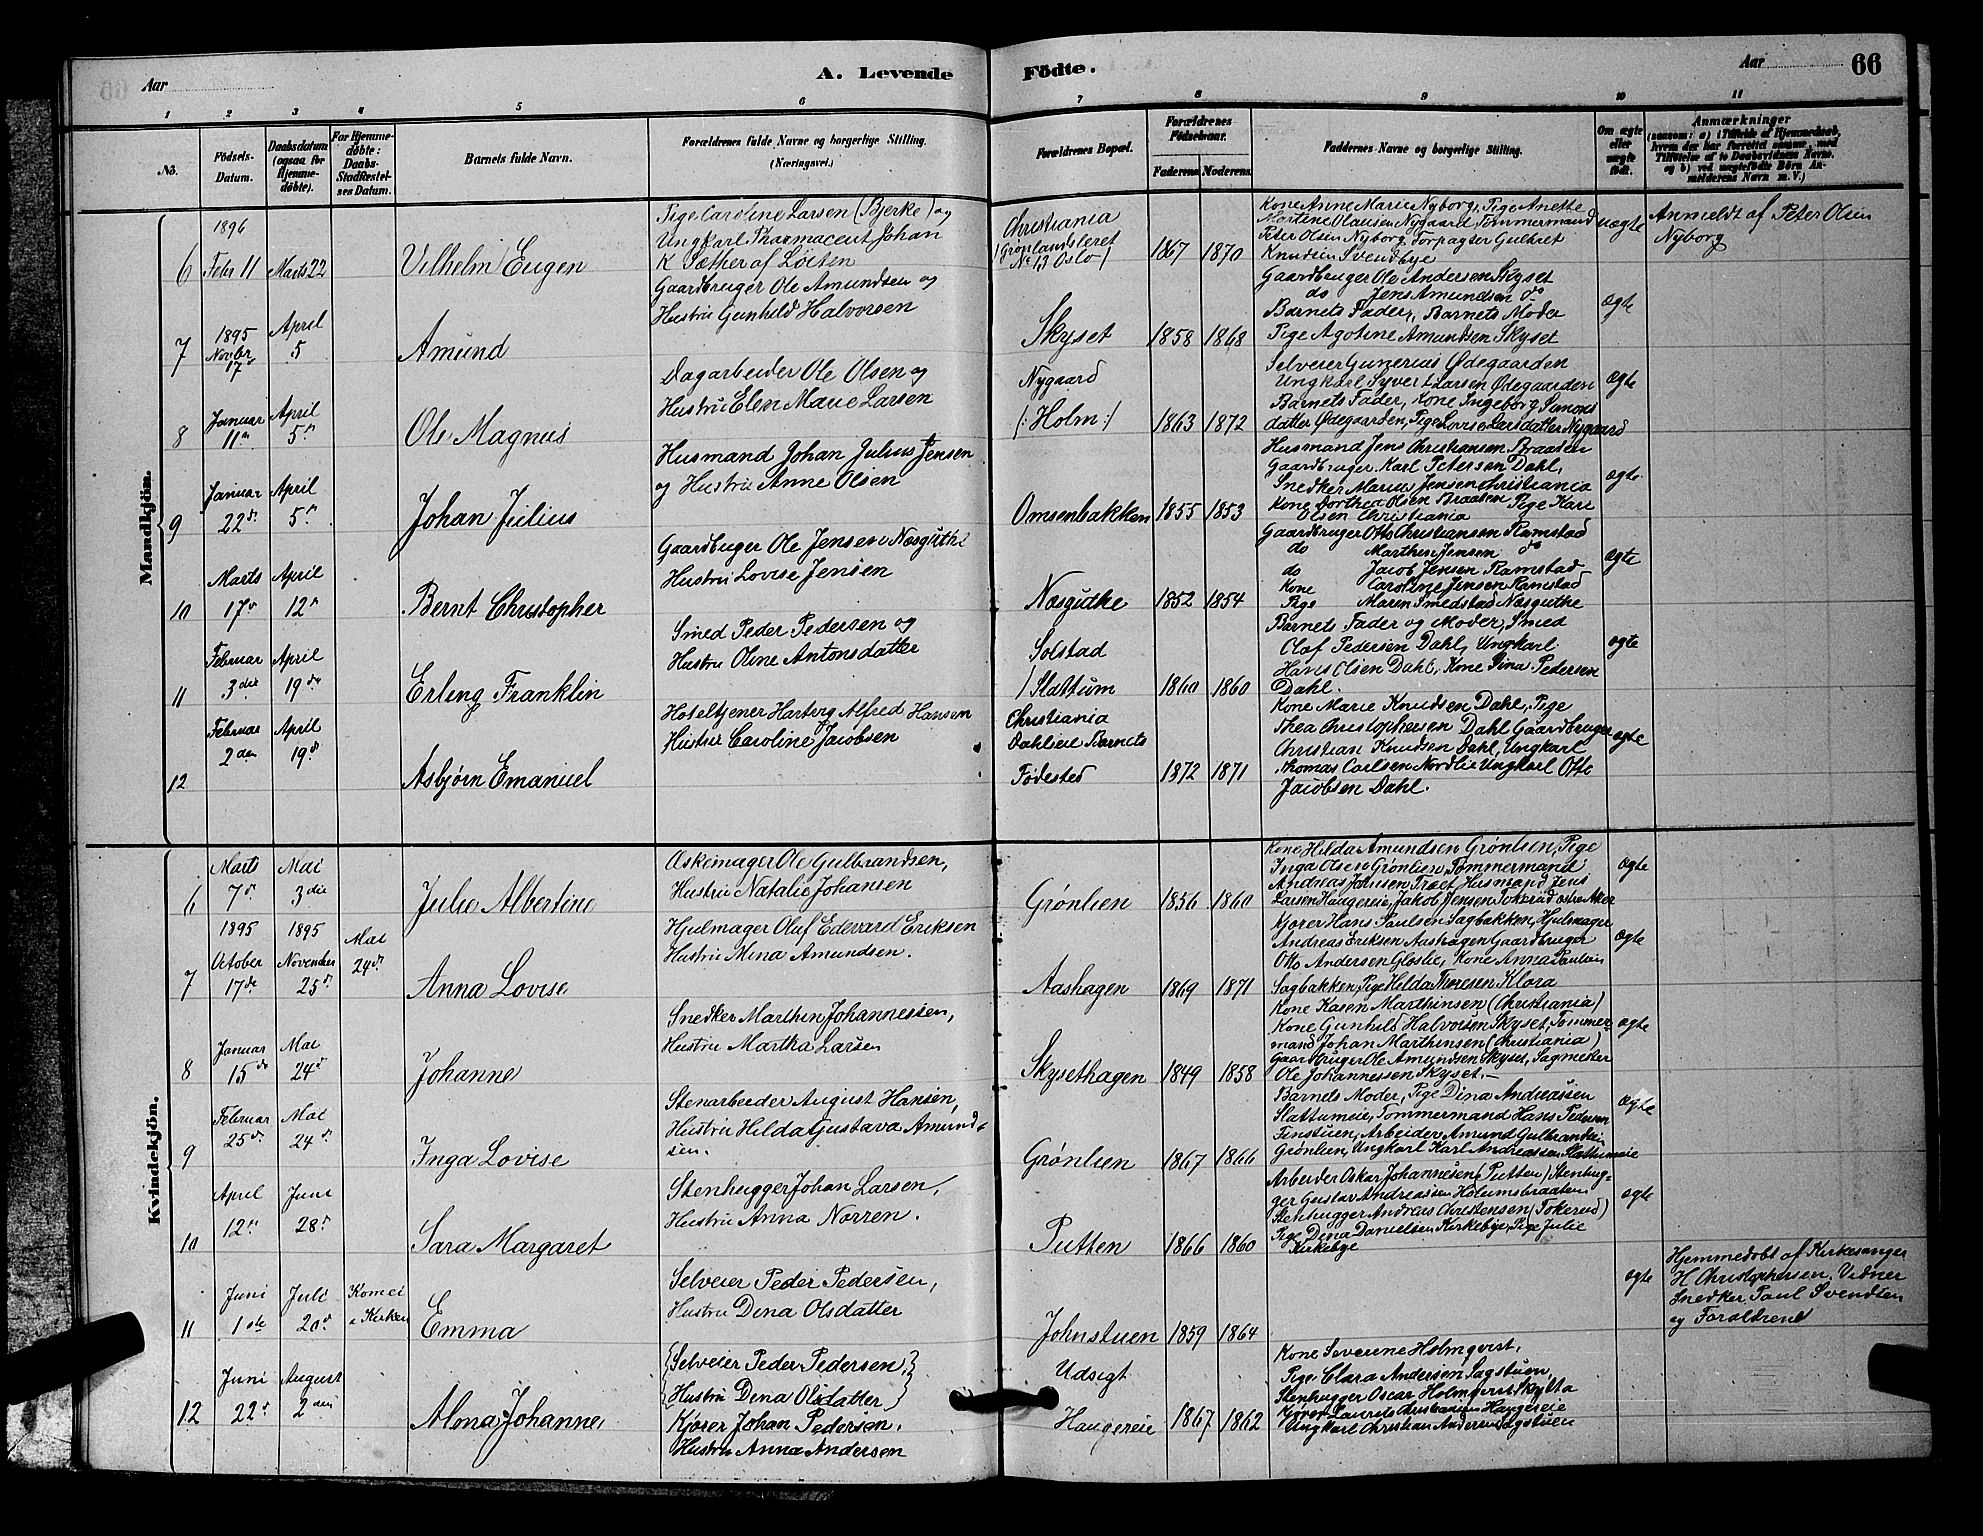 Aar
A. Levende
Födte.
Aar
66
1 2 3 4 5 6 7 8 9 10 11
No.
Födsels-Datum.
Daabsdatum (ogsaa for Hjemmedöbte).
For Hjemmedöbte: Daabs-Stadfæstelses Datum.
Barnets fulde Navn.
Forældrenes fulde Navne og borgerlige Stilling. (Næringsvei.)
Forældrenes Bopæl.
Forældrenes Födselsaar.
Faderens Moderens
Faddernes Navne og borgerlige Stilling.
Om ægte eller uægte født.
Anmærkninger
(saasom: a) i Tilfælde af Hjemmedaab, hvem der har forrettet samme, med Tilföielse af to Daabsvidners Navne, og b) ved uægtefødte Börn Anmelderens Navn m. V.)
Mandkjön.
6
1896
Febr 11
Marts 22
Vilhelm Eugen
Pige Caroline Larsen (Bjerke) og
Ungkarl Pharmaceut Johan
K Sæther af Løiten
Christiania
/Grønlandsleret
No 13 Oslo/
1867 1870
Kone Anne Marie Nyborg, Pige Anette
Martine Olausen Nygaard Tømmermand
Peter Olsen Nyborg Forpagter Gulbret
Knudsen Svendbye
uægte
Anmeldt af Peter Olsen
Nyborg
7
1895
Novbr
17 d
April
5
Amund
Gaardbruger Ole Amundsen og
Hustru Gunhild Halvorsen
Skyset
1858 1868
Gaardbruger Ole Andersen Skyset
do Jens Amundsen do
Barnets Fader, Barnets Moder
Pige Agotine Amundsen Skyset
ægte
8
Januar
11 te
April
5 d
Ole Magnus
Dagarbeider Ole Olsen og
Hustru Elen Marie Larsen
Nygaard
/: Holm :/
1863 1872
Selveier Gunerius Ødegaarden
Ungkarl Syvert Larsen Ødegaarden
Barnets Fader, Kone Ingeborg Simons
datter Ødegaarden, Pige Lovise Larsdatter Nygaard
ægte
9
Januar
22 d
April
5 d
Johan Julius
Husmand Johan Julius Jensen
og Hustru Anne Olsen
Omsenbakken
1855 1853
Husmand Jens Christiansen Braaten
Gaardbruger Karl Petersen Dahl,
Snedker Marius Jensen Christiania
Kone Dorthea Olsen Braaten Pige Kari
Olsen Christiania
ægte
10
Marts
17 d
April
12 d
Bernt Christopher
Gaardbuger Ole Jensen Næsguthe
Hustru Lovise Jensen
Næsgudke
1852 1854
Gaardbruger Otto Christiansen Ramstad
do Marthin Jensen do
do Jacob Jensen Ramstad
Kone Caroline Jensen Ramstad
Pige Maren Smedstad Næsguthe
ægte
11
Februar
3 die
April
19 de
Erling Franklin
Smed Peder Pedersen og
Hustru Oline Antonsdatter
Solstad
/Slattum
1860 1860
Barnets Fader og Moder, Smed
Olaf Pedersen Dahl, Ungkarl
Hans Olsen Dahl, Kone Dina Pedersen
Dahl.
ægte
12
Februar
2 den
April
19 d
Asbjørn Emanuel
Hoteltjener Hartvig Alfred Hansen
Hustru Caroline Jacobsen
Christiania
Dahlieie Barnets
Fødested
1872 1871
Kone Marie Knudsen Dahl, Pige
Thea Christophersen Dahl Gaardbruger
Christian Knudsen Dahl, Ungkarl
Thomas Carlsen Nordlie Ungkarl Otto
Jacobsen Dahl.
ægte
Kvindekjön.
6
Marts
7 d
Mai
3 die
Julie Albertine
Æskemager Ole Gulbrandsen,
Hustru Natalie Johansen
Grønlien
1856 1860
Kone Hilda Amundsen Grønlien, Pige
Inga Olsen Grønlien Tømmermand
Andreas Johnsen Træet Husmand Jens
Larsen Haugereie, Jakob Jensen Tokerud østre Aker
ægte
7
1895
October
17 de
1895
November
25 d
Mai
24 d
Anna Lovise
Hjulmager Oluf Edevard Eriksen
Hustru Mina Amundsen.
Aashagen
1869 1871
Kjører Hans Paulsen Sagbakken, Hjulmager
Andreas Eriksen Aashagen Gaardbruger
Otto Andersen Gloslie, Kone Anna Paulsen
Sagbakken, Pige Helda Thoresen Klora
ægte
8
Januar
15 de
Mai
24 d
Johanne
Snedker Marthin Johannessen,
Hustru Martha Larsen
Skysethagen
1849 1858
Kone Karen Marthinsen (Christiania)
Kone Gunhild Halvorsen Skyset, Tømmer-
mand Johan Marthinsen (Christiania)
Gaardbruger Ole Amundsen Skyset, Sagmester
Ole Johannessen Skyset.
ægte
9
Februar
25 d
Mai
24 d
Inga Lovise
Stenarbeider August Hansen,
Hustru Hilda Gustava Amund-
sen.
Grønlien
1867 1866
Barnets Moder, Pige Dina Andreasen
Slattumeie, Tømmermand Hans Pedersen
Finstuen, Arbeider Amund Gulbrandsen
Grønlien, Ungkarl Karl Andreassen Slattumeie
ægte
10
April
12 te
Juni
28 d
Sara Margaret
Stenhugger Johan Larsen,
Hustru Anna Norren.
Putten
1866 1860
Arbeider Oskar Johannesen (Putten) Stenhug-
ger Gustav Andreassen Holumsbraaten
Stenhugger Andreas Christensen (Tokerud)
Pige Dina Danielsen Kirkebye, Pige Julie
Kirkebye
ægte
11
Juni
1 ste
Juli
20 d
Kom ei
i Kirken
Emma
Selveier Peder Pedersen,
Hustru Dina Olsdatter
Johnstuen
1859 1864
ægte
Hjemmedøbt af Kirkesanger
H Christophersen. Vidner
Snedker Paul Svendsen
og Forældrene
12
Juni
22 d
August
2 den
Alma Johanne
{Selveier Peder Pedersen,}
{Hustru Dina Olsdatter}
Kjører Johan Pedersen,
Hustru Anna Andersen
Udsigt
Haugereie
1867 1862
Kone Severine Holmqvist,
Pige Clara Andersen Sagstuen,
Stenhugger Oscar Holmqvist Skytta
Kjører Laurits Christiansen Haugereie
Ungkarl Christian Andersen Sagstuen